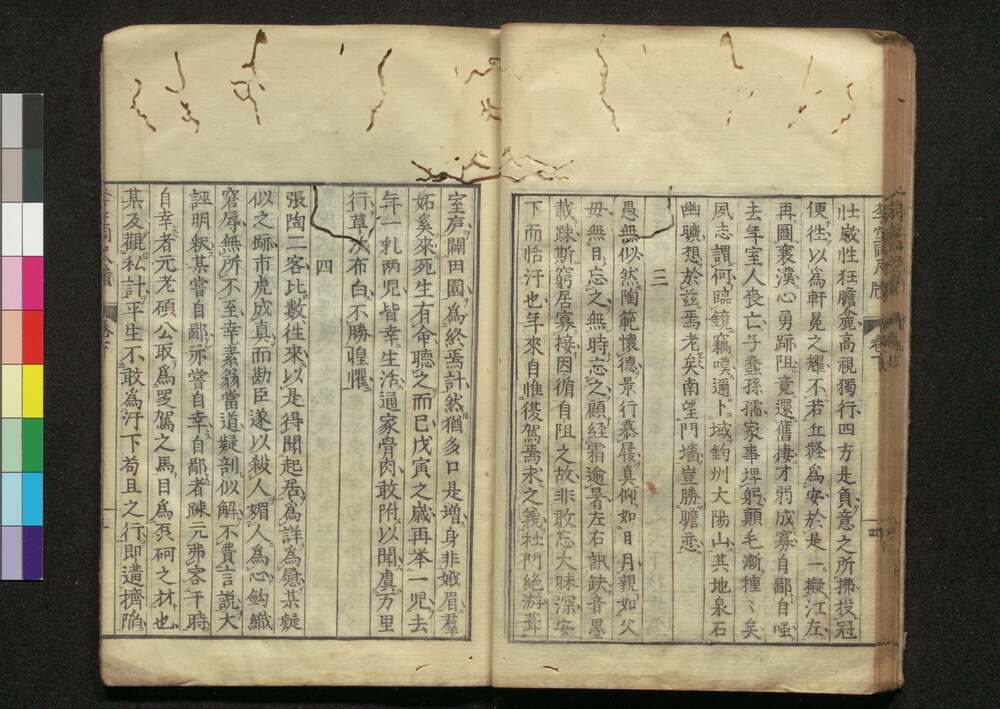 仕歳性狂膽麁高視獨行四方是負意之所拂投冠
便徃以爲軒晃之耀不若丘壑爲安於是一擬江左
再圖襄漢心勇跡阻竟還舊棲才弱成寡自鄙自嗤
去年室人喪亡子蠢孫孺家事埤躬顛毛漸種〻矣
夙志謂何臨鏡竊嘆邇卜域鈞州大陽山其地泉石
幽曠想於兹焉老矣南望門墻豈勝瞻恋
三
愚無似然陶範懷德景行慕履真仰如日月親如父
母無日忘之無時忘之顧經霜逾暑左右訊鈌音墨
載踈斯窮居寡接因循自阻之故非敢忘大昧深安
下而恬汙也年來自惟後駕焉求之義杜門絶游葺
室庐闢田園爲終焉計然猶多口是増身非娥眉羣
妬奚來死生有命聽之而已戊寅之歳再举一児去
年一乳两児皆幸生活通家骨肉敢附以聞虞万里
行草次布白不勝惶懼
四
張陶二客比數徃來以是得聞起居爲詳爲慰某疑
似之跡市虎成真而勘臣遂以殺人媚人爲心鈎織
窘辱無所不至幸素翁當道疑剖似解不費言説大
誣明釈某嘗自鄙亦嘗自幸自鄙者踈元弗客干時
自幸者元老碩公取爲罢駕之馬目爲砢之材也
某及觀私計平生不敢爲汙下苟且之行即遘擠陥